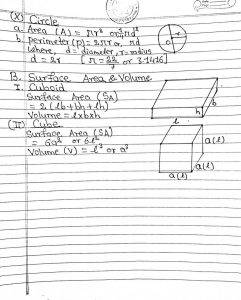 (X) Circle
a. Area (A) = πr² or, πd²
b. perimeter (p) = 2πr or, πd
where, d = diameter, r = radius
d = 2r [π = 22/7 or 3.1416]
r
o
B. Surface Area & Volume
I. Cuboid
Surface Area (SA)
= 2(lb+bh+lh)
Volume = lxbxh
b
h
l
(II) Cube
Surface Area (SA)
= 6a² or 6l²
Volume (V) = l³ or a³
a(l)
a(l)
a(l)